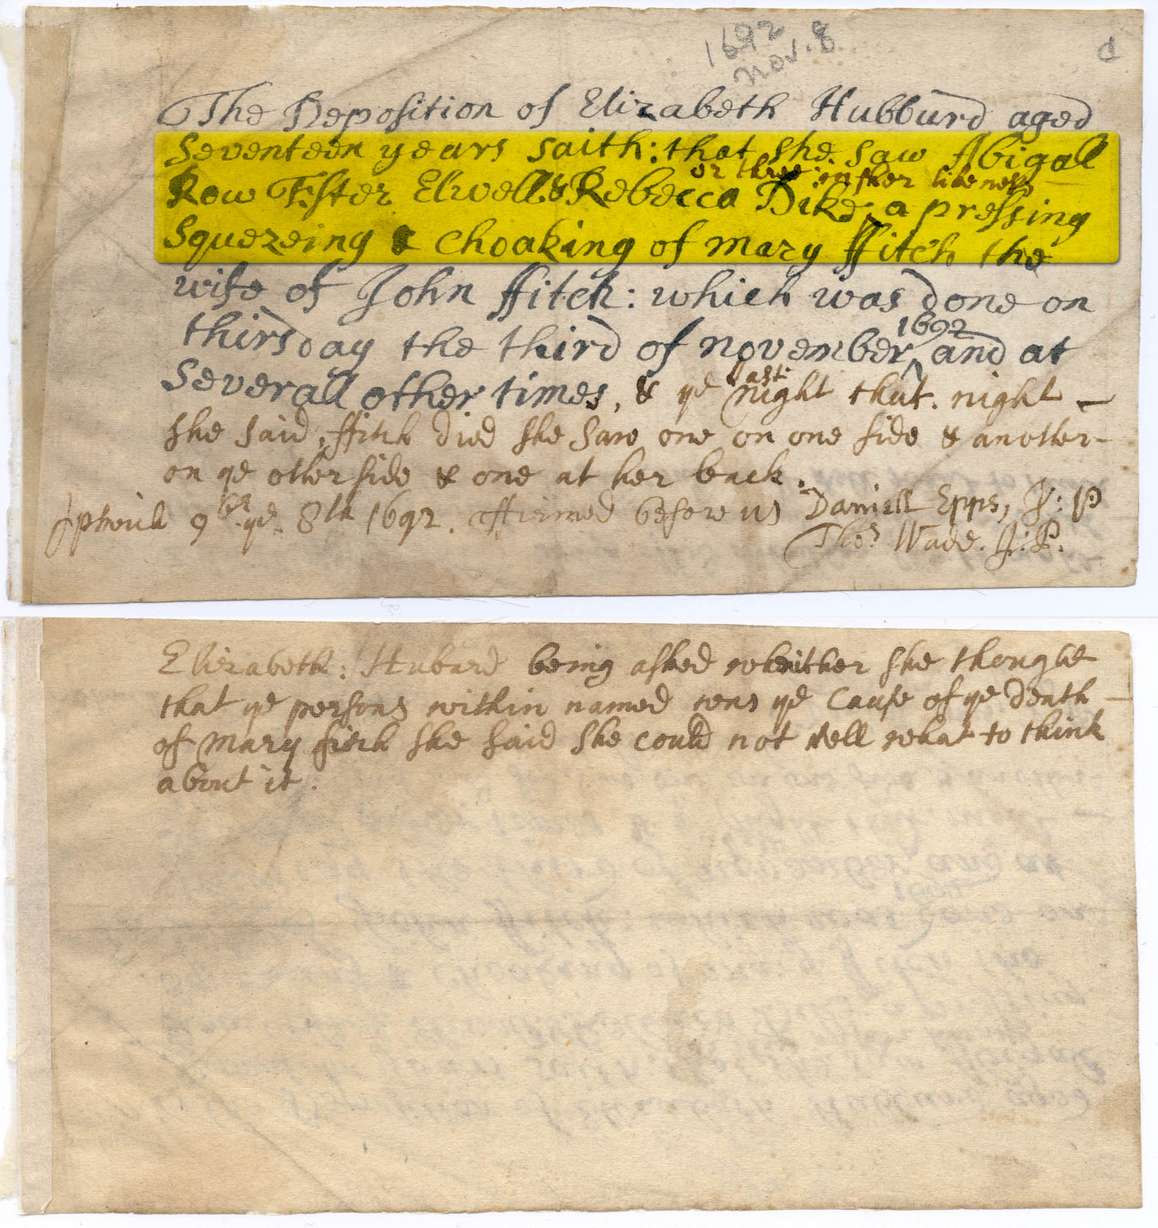 1692
Nov. 8
d
The Deposition of Elizabeth Hubburd aged
Seventeen years saith: that she saw Abigall
or three in ther likenes
Row Ester Elwell & Rebecca Dike a pressing
Squezeing & choaking of mary ffitch the
wife of John ffitch: which was done on
1692
thirsday the third of november and at
last
Severall other times, & ye night that night
she said ffitch died she saw one on one side & another
on ye other side & one at her back.
Ipswich 9br ye 8th 1692. Affirmed before us Daniell Epps, J: P
Thos Wade. J: P.
Elizabeth: Hubard being asked wheither she thought
that ye persons within named wear ye Cause of ye death
of mary fitch she said she could not tell what to think
about it.